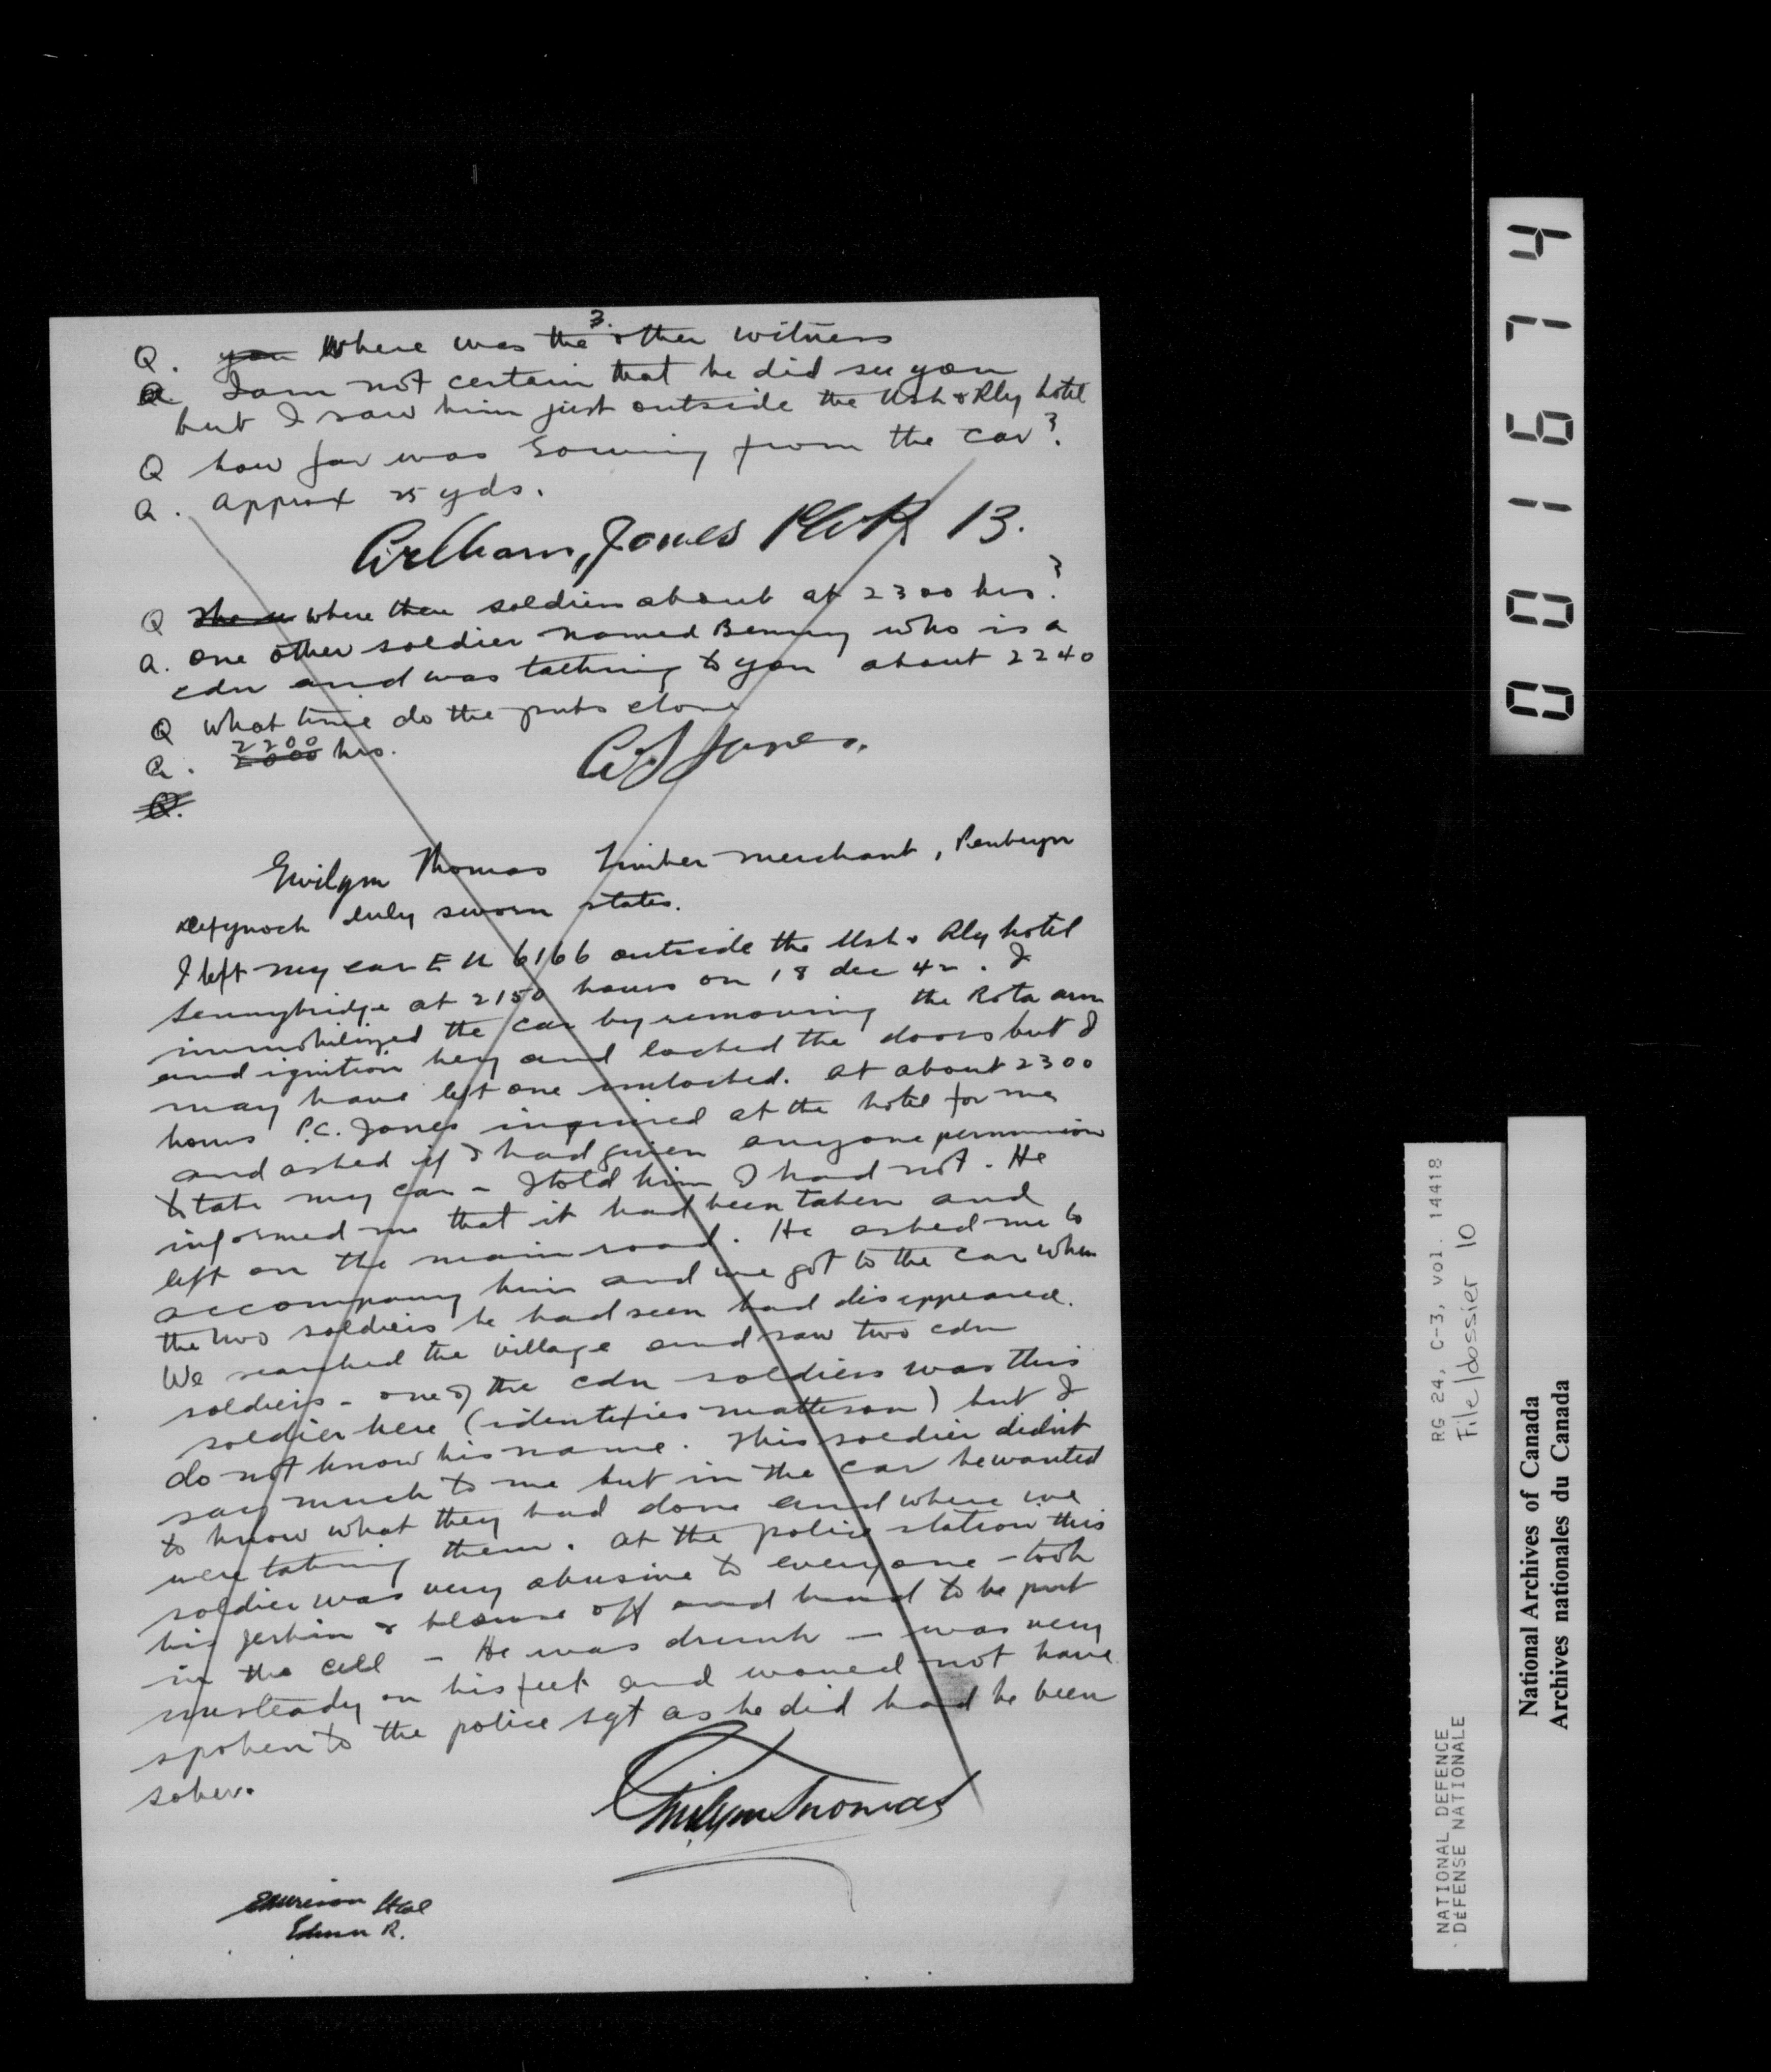 3.
Q. you Where was the other witness
A I am not certain that he did see you
but I saw him just outside the Usk & Rly hotel
Q how far was from the car?
A. approx 25 yds.
William, Jones 13.
Q where there soldiers about at 2300 hrs?
A. one other soldier named Benny who is a
cdn and was talking to you about 2240
Q what time do the pubs close
A. 2200 2000 hrs.
Jones.
Q.
Gwilym Thomas Timber merchant, Penbryn
Defynock duly sworn states.
I left my car EU 6166 outside the Usk & Rly hotel
Sennybridge at 2150 hours on 18 dec 42. I
immobilized the car by removing the Rota arm
and ignition key and locked the doors but I
may have left one unlocked. at about 2300
hours P.C. Jones inquired at the hotel for me
and asked if I had given anyone permission
to take my car - I told him I had not. He
informed me that it had been taken and
left on the main road. He asked me to
accompany him and we got to the car when
the two soldiers he had seen had disappeared.
We searched the village and saw two cdn
soldiers - one of the cdn soldiers was this
soldier here (identifies matteson) but I
do not know his name. This soldier didn't
say much to me but in the car he wanted
to know what they had done and where we
were taking them. at the police station this
soldier was very abusive to everyone - took
his jerkin & blouse off and had to be put
in the cell - He was drunk - was very
unsteady on his feet and would not have
spoken to the police sgt as he did had he been
sober.
Gwilym Thomas
Edmn R.
001674
NATIONAL DEFENCE
DÉFENSE NATIONALE
RG 24, C-3, vol. 14418
File/dossier 10
National Archives of Canada
Archives nationales du Canada